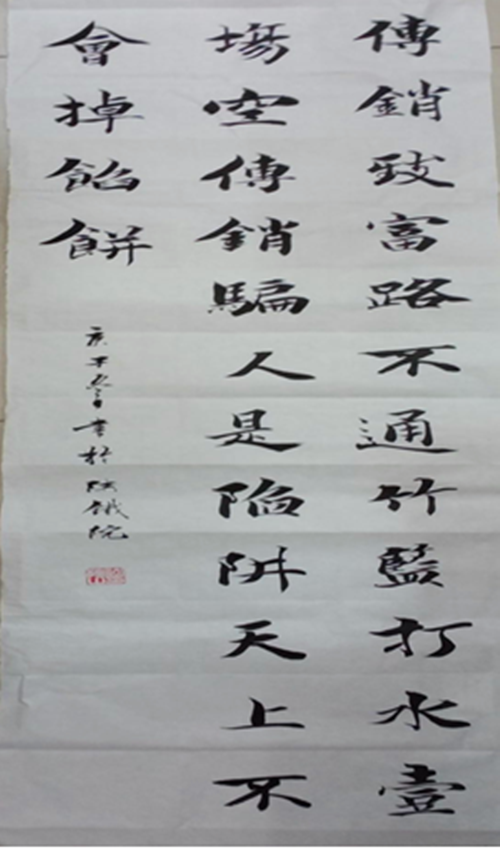 傳銷致富路不通竹藍打水壹
場空傳銷騙人是陥阱天上不
會掉餡餅
庚子冬月書於